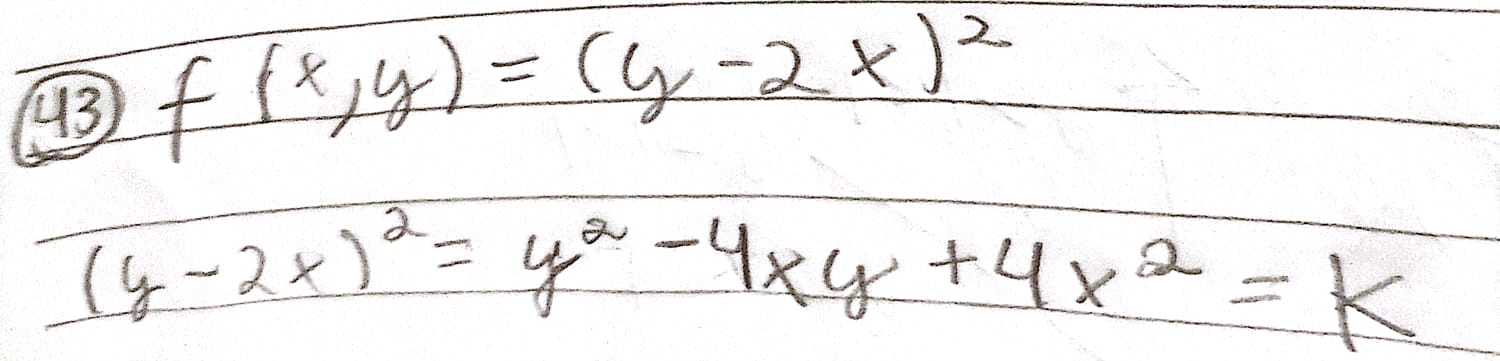 43 f(x,y) = (y-2x)²
(y-2x)² = y² - 4xy + 4x² = K